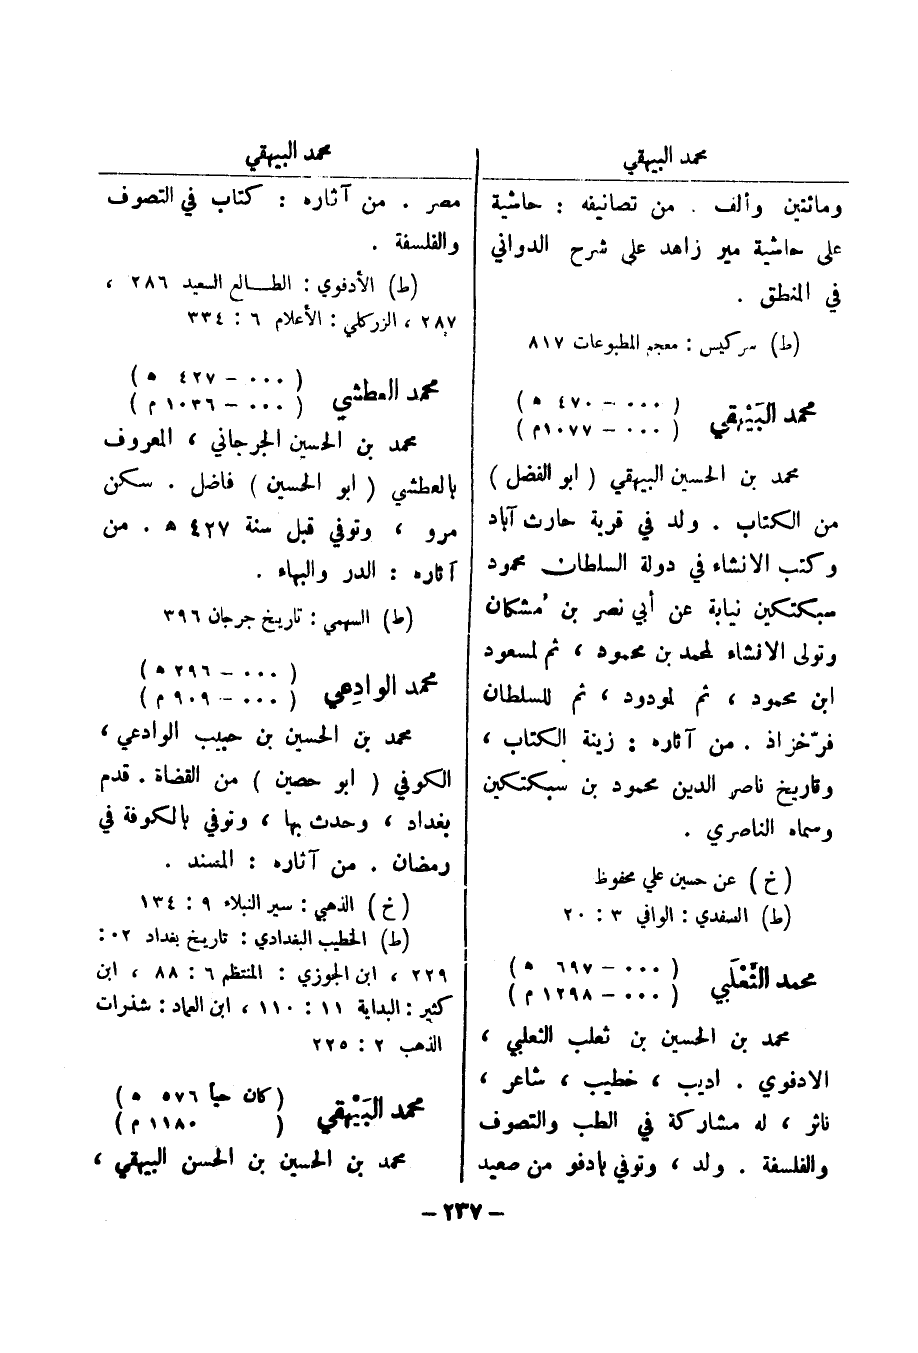 محمد البيهقي
ومائتين وألف . من تصانيفه : حاشية
على حاشية مير زاهد على شرح الدواني
في المنطق .
(ط) سركيس : معجم المطبوعات ٨١٧
محمد البَيْهَقي ( ٠٠٠ – ٤٧٠ ه )
( ٠٠٠ – ١٠٧٧م )
محمد بن الحسين البيهقي ( ابو الفضل )
من الكتاب . ولد في قرية حارث آباد
وكتب الانشاء في دولة السلطان محمود
سبكتكين نيابة عن أبي نصر بن مُشكان
وتولى الانشاء لمحمد بن محمود ، ثم لمسعود
ابن محمود ، ثم لمودود ، ثم للسلطان
فرّخزاذ . من آثاره : زينة الكتاب ،
وتاريخ ناصر الدين محمود بن سبكتكين
وسماه الناصري .
( خ ) عن حسين علي محفوظ
(ط) السفدي : الوافي ٣ : ٢٠
محمد الثَّعْلَبي ( ٠٠٠ – ٦٩٧ ه )
( ٠٠٠ – ١٢٩٨ م )
محمد بن الحسين بن ثعلب الثعلبي ،
الادفوي . اديب ، خطيب ، شاعر ،
ناثر ، له مشاركة في الطب والتصوف
والفلسفة . ولد ، وتوفي بادفو من صعيد
محمد البيهقي
مصر . من آثاره : كتاب في التصوف
والفلسفة .
(ط) الأدفوي : الطالع السعيد ٢٨٦ ،
٢٨٧ ، الزركلي : الأعلام ٦ : ٣٣٤
محمد العطشي ( ٠٠٠ – ٤٢٧ ه )
( ٠٠٠ – ١٠٣٦ م )
محمد بن الحسين الجرجاني ، المعروف
بالعطشي ( ابو الحسين ) فاضل . سكن
مرو ، وتوفي قبل سنة ٤٢٧ ه . من
آثاره : الدر والبهاء .
(ط) السهمي : تاريخ جرجان ٣٩٦
محمد الوادِعي ( ٠٠٠ – ٢٩٦ ه )
( ٠٠٠ – ٩٠٩ م )
محمد بن الحسين بن حبيب الوادعي ،
الكوفي ( ابو حصين ) من القضاة . قدم
بغداد ، وحدث بها ، وتوفي بالكوفة في
رمضان . من آثاره : المسند .
( خ ) الذهبي : سير النبلاء ٩ : ١٣٤
(ط) الخطيب البغدادي : تاريخ بغداد ٠٢ :
٢٢٩ ، ابن الجوزي : المنتظم ٦ : ٨٨ ، ابن
كثير : البداية ١١ : ١١٠ ، ابن العماد : شذرات
الذهب ٢ : ٢٢٥
محمد البَيْهَقي ( كان حيا ٥٧٦ ه )
( ١١٨٠ م )
محمد بن الحسين بن الحسن البيهقي ،
– ٢٣٧ –